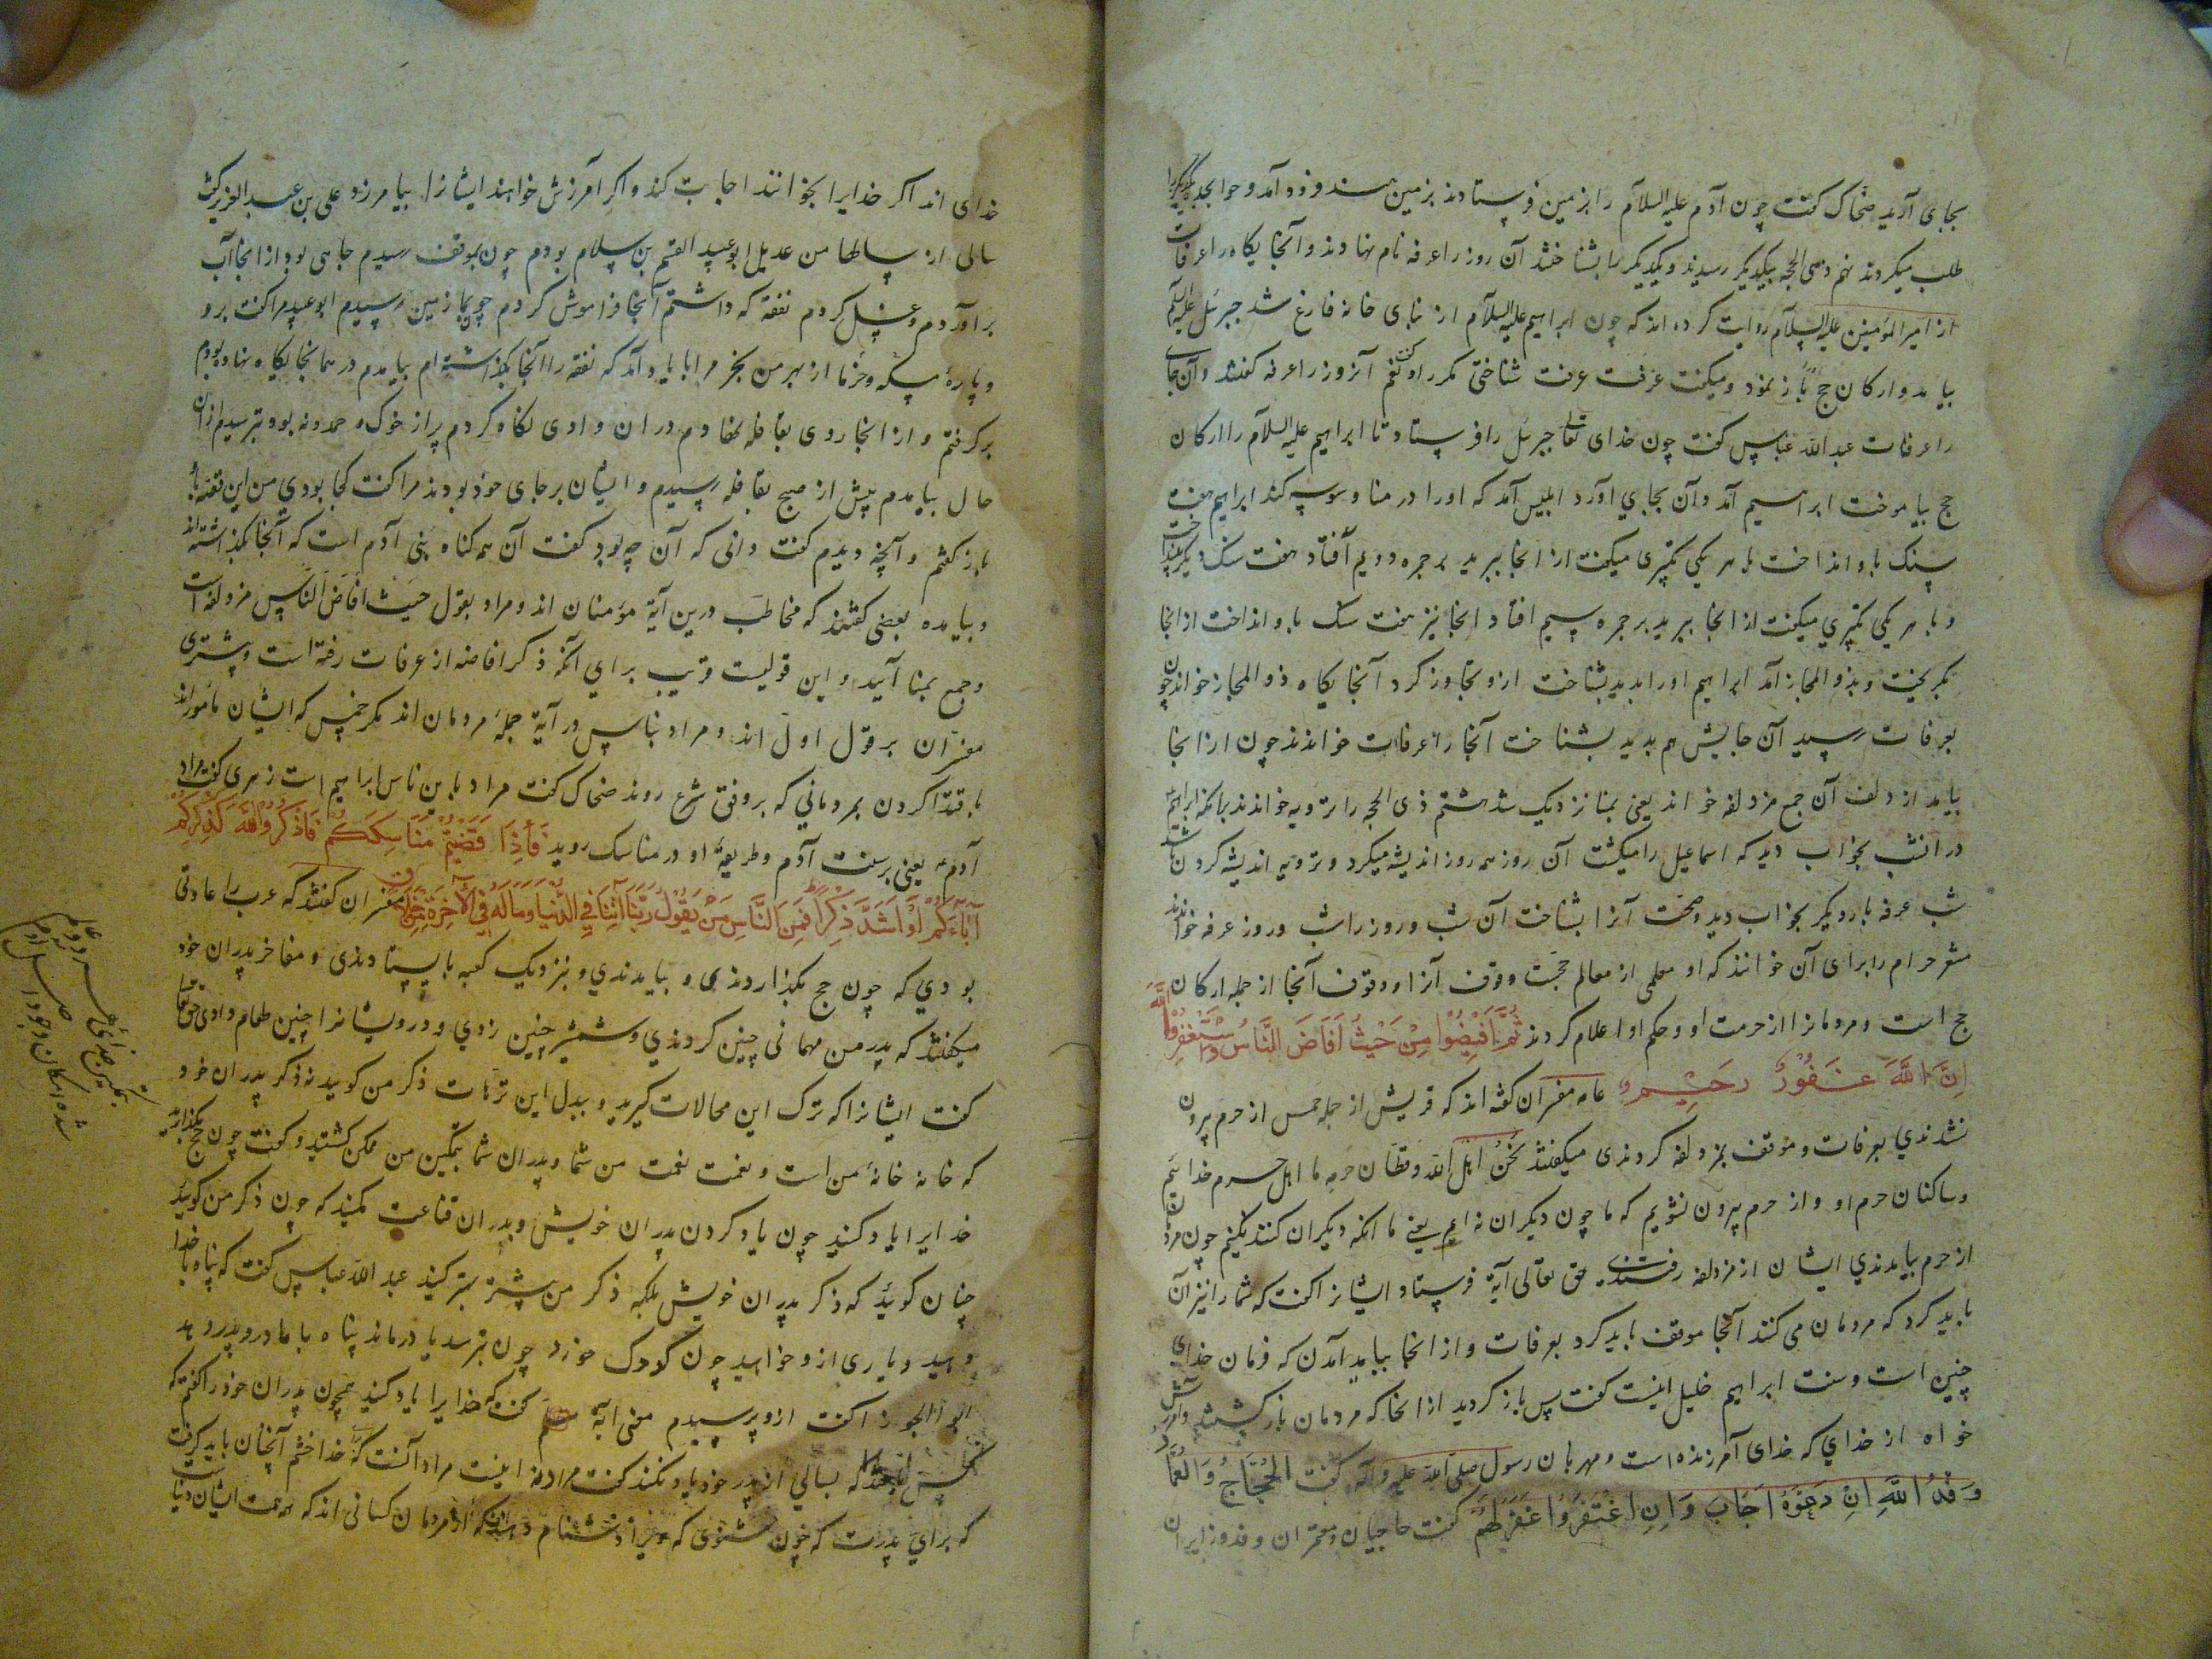 بجای آرید ضحاک گفت چون آدم علیه السلام را بزمین فرستادند بزمین هند فرود آمد و حوا بجده یکدیگر را
طلب میکردند نهم ذی الحجه بیکدیگر رسیدند و یکدیگر را بشناختند آن روز را عرفه نام نهادند و آنجایگاه را عرفات
از امیر المؤمنین علیه السلام روایت کرده اند که چون ابراهیم علیه السلام از بنای خانه فارغ شد جبرئیل علیه السلم
بیامد و ارکان حج باز نمود و میگفت عرفت عرفت شناختی مکرر او گفت نعم آنروز را عرفه گفتند و آن جای
را عرفات عبد الله عباس گفت چون خدای تعالی جبرئیل را فرستاد تا ابراهیم علیه السلام را ارکان
حج بیاموخت ابراهیم آمد و آن بجای آورد ابلیس آمد که او را در منا وسوسه کند ابراهیم هفت
سنک باو انداخت با هر یکی تکبیری میگفت از انجا ببرید بر جمره دویم افتاد هفت سنک دیگر بینداخت
و با هر یکی تکبیری میگفت از انجا ببرید بر جمره سیم افتاد انجا نیز هفت سنک باو انداخت از انجا
بگریخت و بذو المجاز آمد ابراهیم او را بدید بشناخت ازو تجاوز کرد آنجایگاه ذو المجاز خواندند چون
بعرفات رسید آن جایش هم بدید بشناخت آنجا را عرفات خواندند چون از انجا
بیامد ازدلف آن جمع مزدلفه خواند یعنی بمنا نزدیک شد هشتم ذی الحجه را ترویه خواندند بآنکه ابراهیم
در انشب بخواب دید که اسماعیل را میکشت آن روز همه روز اندیشه میکرد و ترویه اندیشه کردن باشد
شب عرفه بار دیگر بخواب دید صحت آنرا بشناخت آن شب و روز را شب و روز عرفه خواندند
مشعر حرام را برای آن خوانند که او معلمی از معالم حجست وقوف آنرا و وقوف آنجا از جمله ارکان
حج است و مردمانرا از حرمت او و حکم او اعلام کردند ثُمَّ اَفِیضُوا مِنْ حَیْثُ اَفَاضَ النَّاسُ وَاسْتَغْفِرُوا اللَّهَ
اِنَّ اللَّهَ غَفُورٌ رَحِیمٌ عامه مفسران گفته اند که قریش از جمله حمس از حرم بیرون
نشدندی بعرفات و موقف بمزدلفه کردندی میگفتند نحن اهل الله و قطان حرمه ما اهل حرم خدائیم
و ساکنان حرم او و از حرم بیرون نشویم که ما چون دیگران نه ایم یعنی ما آنکه دیگران کنند نکنیم چون مردمان
از حرم بیامدندی ایشان از مزدلفه رفتندی حق تعالی آیة فرستاد ایشانرا گفت که شما را نیز آن
باید کرد که مردمان می کنند آنجا موقف باید کرد بعرفات و از انجا بباید آمدن که فرمان خدای
چنین است و سنت ابراهیم خلیل اینست گفت پس باز گردید از انجا که مردمان باز گشتند و آمرزش
خواه از خدای که خدای آمرزنده است و مهربان رسول صلی الله علیه و آله گفت الحُجَّاجُ وَ العُمَّارُ
وَفْدُ اللَّهِ اِنْ دَعَوْهُ اَجَابَ وَ اِنِ اسْتَغْفَرُوا غَفَرَ لَهُمْ گفت حاجیان و معتمران وفد و زایران
خدای اند اگر خدایرا بخوانند اجابت کند و اگر آمرزش خواهند ایشانرا بیامرزد علی بن عبد العزیز گفت
سالی از سالها من عدیل ابو عبید القسم بن سلام بودم چون بموقف رسیدم چاهی بود از انجا آب
برآوردم و غسل کردم نفقه که داشتم آنجا فراموش کردم چون بمازمین رسیدم ابو عبید مرا گفت برو
و پارهٔ مسکه و خرما از بهر من بخر مرا با یاد آمد که نفقه را آنجا بگذاشته ام بیامدم در همانجایگاه نهاده بودم
برگرفتم و از انجا روی بقافله نهادم در ان وادی نگاه کردم پر از خوک و حمدونه بود بترسیدم از ان
حال بیامدم پیش از صبح بقافله رسیدم و ایشان بر جای خود بودند مرا گفت کجا بودی من این قصه با او
باز گفتم و آنچه دیدم گفت دانی که آن چه بود گفت آن همه گناه بنی آدم است که آنجا بگذاشته اند
و بیامده بعضی گفتند که مخاطب درین آیة مؤمنان اند و مراد بقول حیث افاض الناس مزدلفه است
و جمع بمنا آیید و این قولیست قریب برای آنکه ذکر افاضه از عرفات رفته است و بیشتری
مفسران بر قول اول اند و مراد بناس در آیة جملهٔ مردمان اند مگر حمس که ایشان مامور اند
باقتدا کردن بمردمانی که بر وفق شرع روند ضحاک گفت مراد باین ناس ابراهیم است زهری گفت مراد
آدم ع یعنی بر سنت آدم و طریقهٔ او در مناسک روید فَاِذَا قَضَیْتُمْ مَنَاسِکَکُمْ فَاذْکُرُوا اللَّهَ کَذِکْرِکُمْ
آبَاءَکُمْ اَوْ اَشَدَّ ذِکْرًا فَمِنَ النَّاسِ مَنْ یَقُولُ رَبَّنَا آتِنَا فِی الدُّنْیَا وَمَا لَهُ فِی الْآخِرَةِ مِنْ خَلَاقٍ مفسران گفتند که عرب را عادتی
بودی که چون حج بگذاردندی و بیامدندی و بنزدیک کعبه بایستادندی و مفاخر پدران خود
میگفتند که پدر من مهمانی چنین کردندی و شمشیر چنین زدی و درویشانرا چنین طعام دادی حق تعالی
گفت ایشانرا که ترک این محالات گیرید و بدل این ترهات ذکر من گویید نه ذکر پدران خود
که خانه خانهٔ من است و نعمت نعمت من شما و پدران شما بتمکین من ممکن گشتید و گفت چون حج بگذارید
خدایرا یاد کنید چون یاد کردن پدران خویش و بدان قناعت مکنید که چون ذکر من گویید
چنان گویید که ذکر پدران خویش بلکه ذکر من بیشتر بهتر کنید عبد الله عباس گفت که پناه با خدا
دهید و یاری ازو خواهید چون کودک خورد چون بترسد یا درماند پناه با مادر و پدر دهد
ابو الجوزا گفت ازو پرسیدم معنی آیة گفت که خدایرا یاد کنید همچون پدران خود را گفتم که
کس باشد که بسالی از پدر خود یاد نکند گفت مراد نه اینست مراد آنست که خدا خشم آنچنان باید گرفت
که برای پدرت که چون بشنوی که ویرا دشنام دهند که از مردمان کسانی اند که همت ایشان دنیا
بتمکین خدای
شده امکان وجود